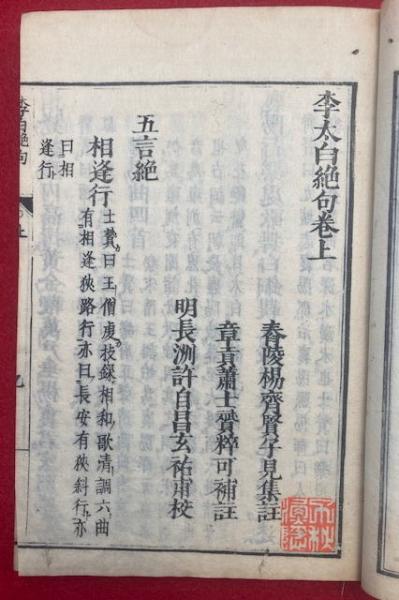 李太白絶句卷上
春陵楊齊賢子見集註
章貢蕭士贇粹可補註
明長洲許自昌玄祐甫校
五言絶
相逢行 士贇曰王僧虔技録相和歌清調六曲
有相逢狹路行亦曰長安有狹斜行亦
曰相
逢行
李白絶句
上